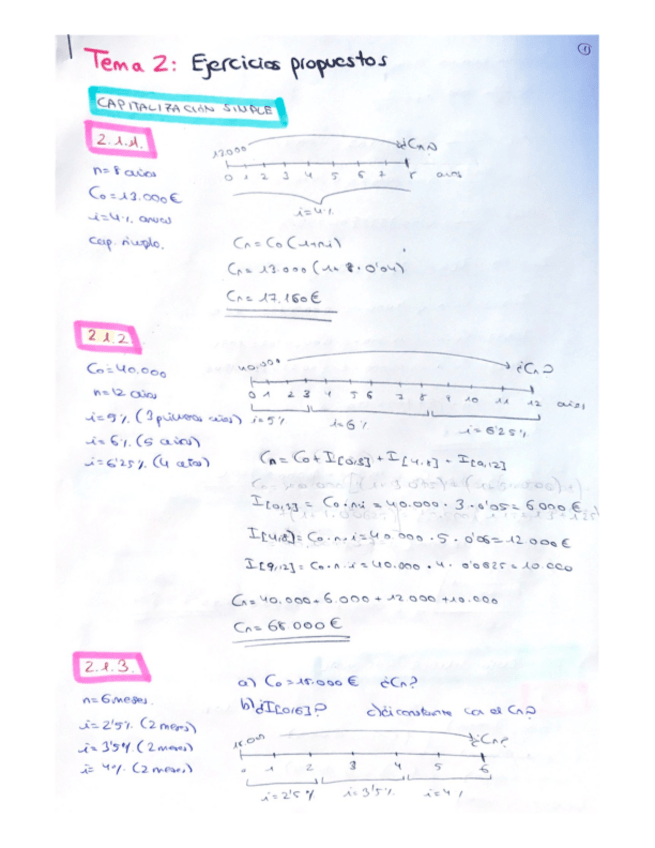 1
Tema 2: Ejercicios propuestos
CAPITALIZACIÓN SIMPLE
2.1.1.
n=8 años
C0=13.000€
i=4% anual
cap. simple.
13000 ¿Cn?
0 1 2 3 4 5 6 7 8 años
i=4%
Cn=C0(1+n·i)
Cn=13.000(1+8·0'04)
Cn=17.160€
2.1.2.
C0=40.000
n=12 años
i=5% (3 primeros años)
i=6% (5 años)
i=6'25% (4 años)
40.000 ¿Cn?
0 1 2 3 4 5 6 7 8 9 10 11 12 años
i=5% i=6% i=6'25%
Cn=C0+I[0,3]+I[4,8]+I[9,12]
I[0,3]=C0·n·i=40.000·3·0'05=6000€
I[4,8]=C0·n·i=40.000·5·0'06=12000€
I[9,12]=C0·n·i=40.000·4·0'0625=10.000
Cn=40.000+6.000+12000+10.000
Cn=68000€
2.1.3.
n=6 meses.
i=2'5% (2 meses)
i=3'5% (2 meses)
i=4% (2 meses)
a) C0=18.000€ ¿Cn?
b) ¿I[0,6]? c) ¿i constante con el Cn?
18.000 ¿Cn?
0 1 2 3 4 5 6
i=2'5% i=3'5% i=4%